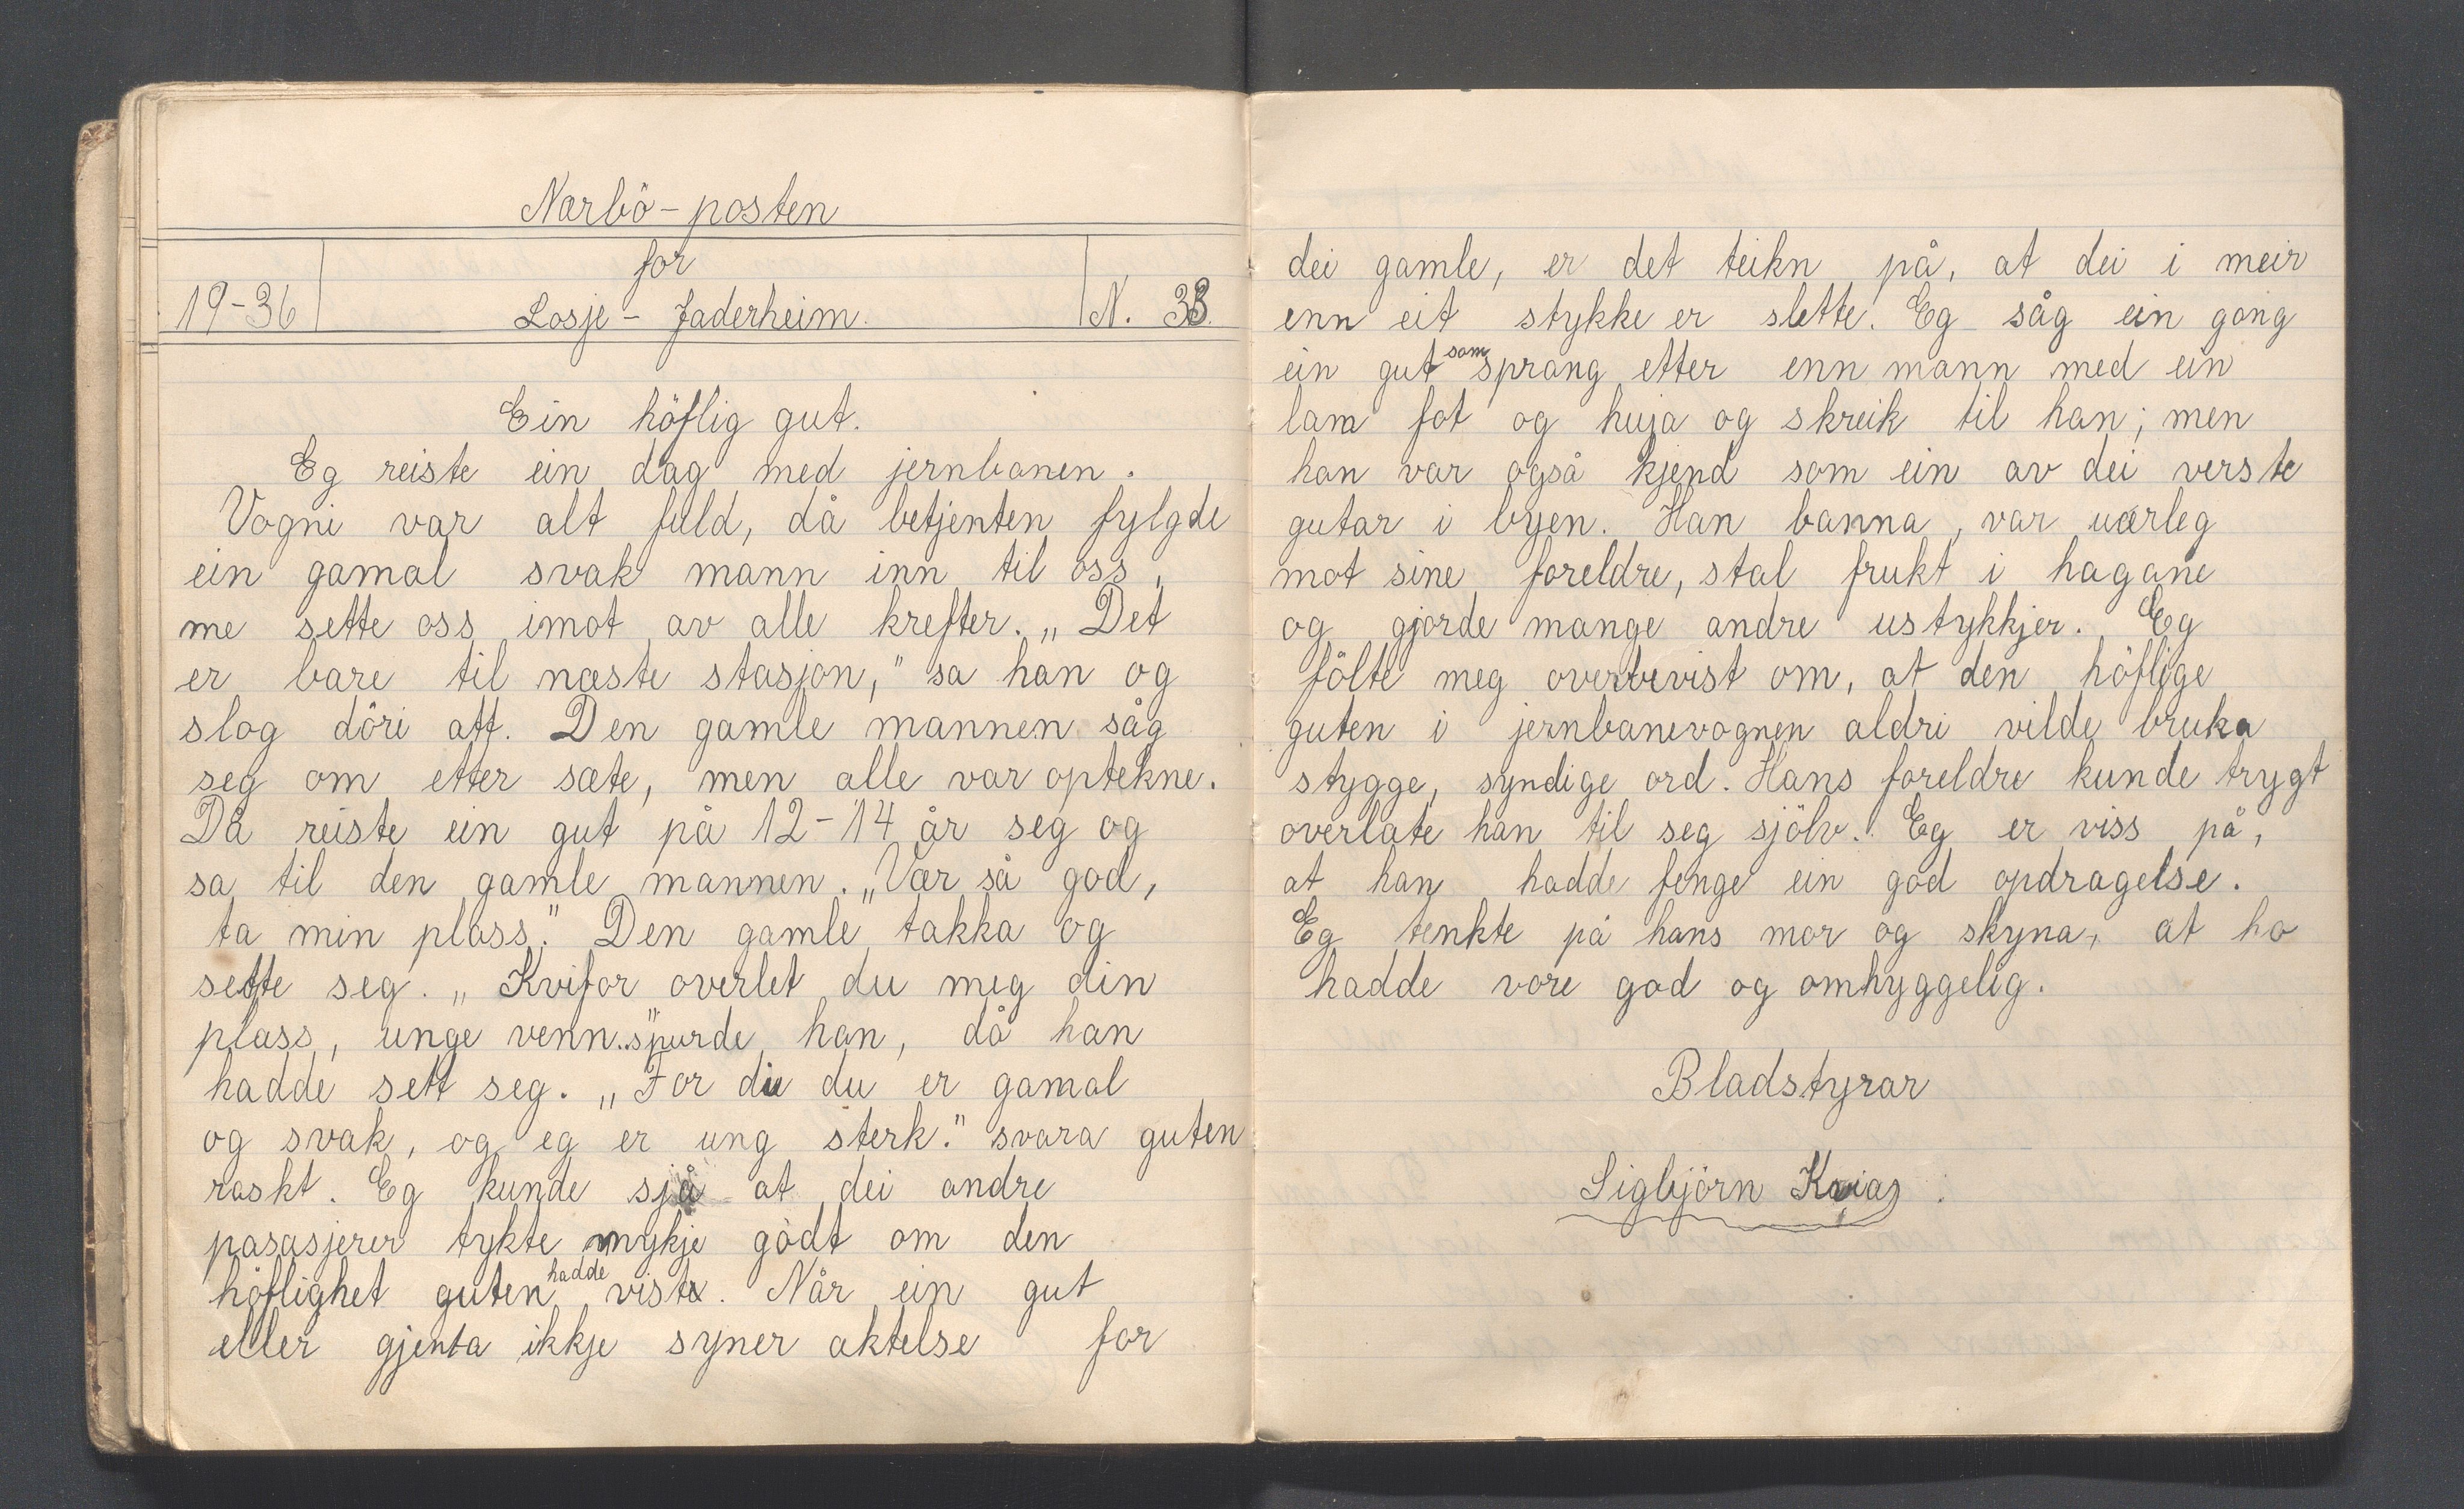 Nærbö-posten
for
19-36 Losje - Jaderheim. N. 33.
Ein höflig gut.
Eg reiste ein dag med jernbanen.
Vogni var alt fuld, då betjenten fylgde
ein gamal svak mann inn til oss,
me sette oss imot av alle krefter. „Det
er bare til næste stasjon," sa han og
slog döri att. Den gamle mannen såg
seg om etter sæte, men alle var optekne.
Då reiste ein gut på 12-14 år seg og
sa til den gamle mannen. „Vær så god,
ta min plass." Den gamle takka og
sette seg. „Kvifor overlet du meg din
plass, unge venn." spurde han, då han
hadde sett seg. „For di du er gamal
og svak, og eg er ung sterk." svara guten
raskt. Eg kunde sjå at dei andre
pasasjerer tykte mykje godt om den
höflighet guten hadde vist. Når ein gut
eller gjenta ikkje syner aktelse for
dei gamle, er det teikn på, at dei i meir
enn eit stykke er slette. Eg såg ein gong
ein gut som sprang etter enn mann med ein
lam fot og huja og skreik til han; men
han var også kjend som ein av dei verste
gutar i byen. Han banna, var uærleg
mot sine foreldre, stal frukt i hagane
og gjorde mange andre ustykkjer. Eg
fölte meg overbevist om, at den höflige
guten i jernbanevognen aldri vilde bruka
stygge, syndige ord. Hans foreldre kunde trygt
overlate han til seg sjölv. Eg er viss på,
at han hadde fenge ein god opdragelse.
Eg tenkte på hans mor og skyna, at ho
hadde vore god og omhyggelig.
Bladstyrar
Sigbjörn